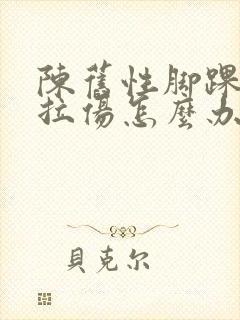 陳舊性腳踝
拉傷怎麼办
貝克尔